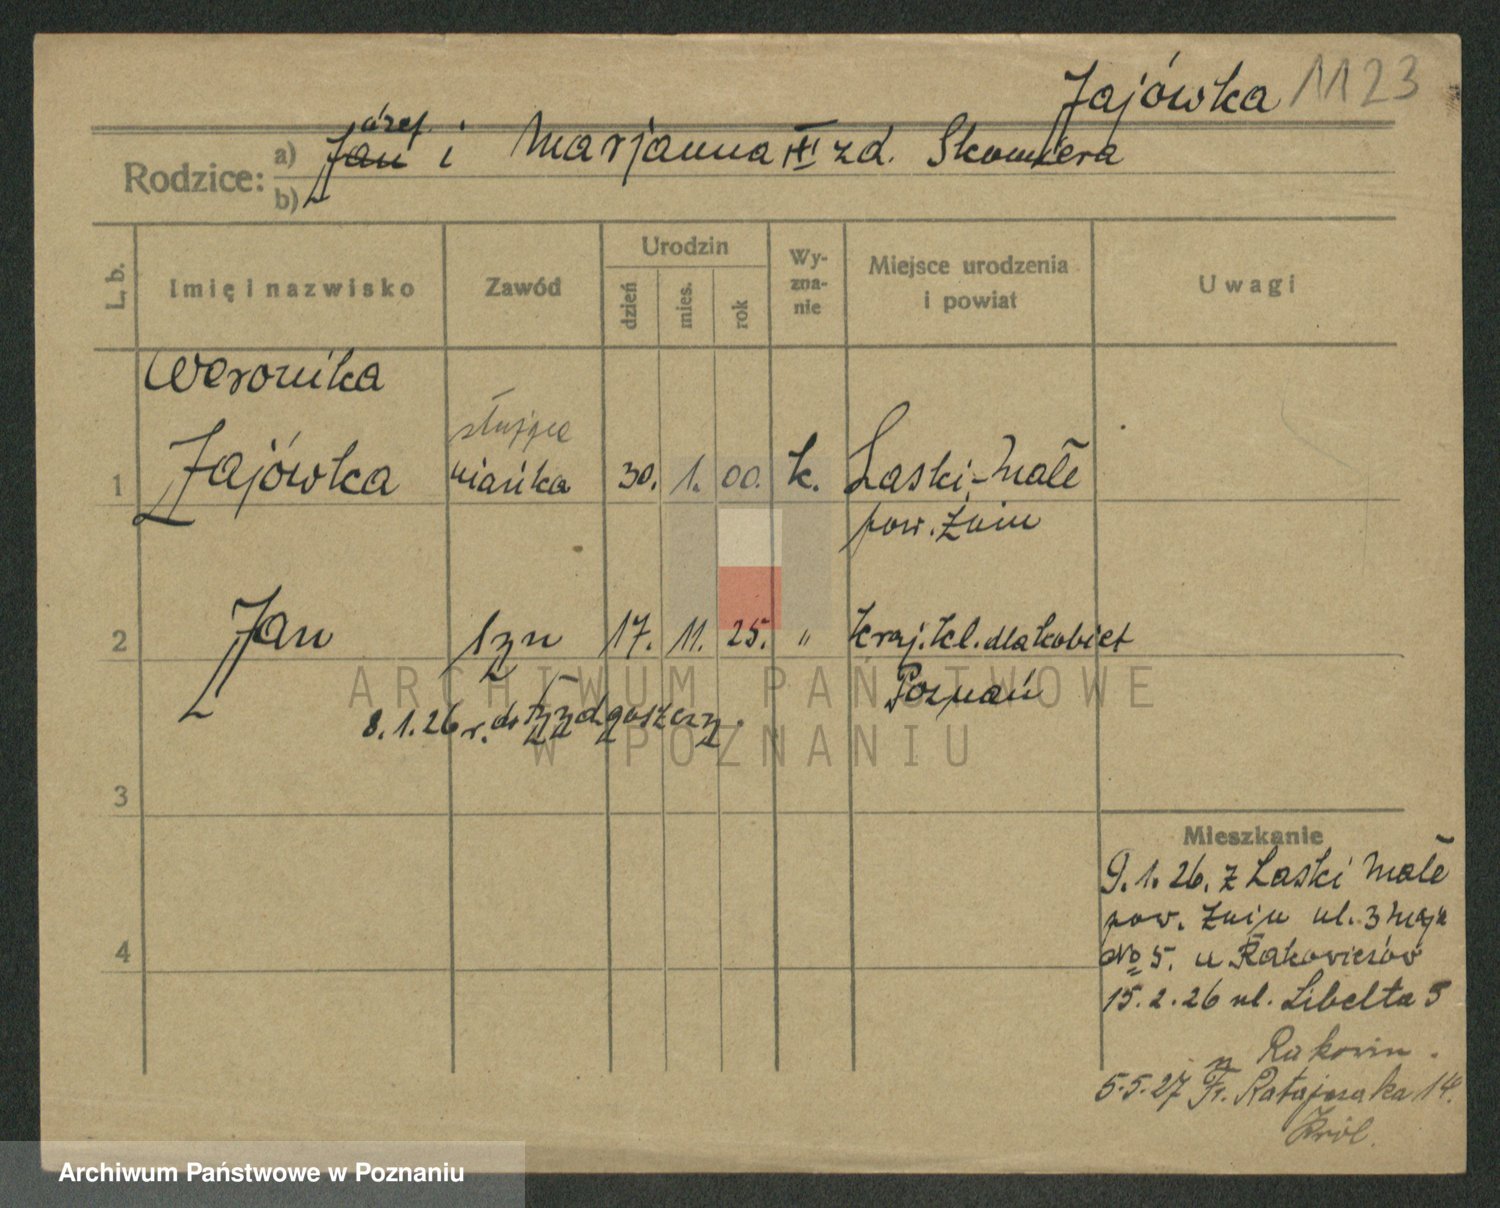 Jajówka 1123
Józef
Rodzice: a) Jan i Marjanna zd. Skomiera
b)
L. b. Imię i nazwisko Zawód Urodzin dzień mies. rok Wyznanie Miejsce urodzenia i powiat Uwagi
Weronika
służąca
1 Jajówka niańka 30. 1. 00. k. Laski-Małe
pow. Żnin
2 Jan syn 17. 11. 25. " Kraj. kl. dla kobiet
Poznań
8.1.26 r. do Bydgoszczy.
3
Mieszkanie
9.1.26. z Laski Małe
pow. Żnin ul. 3 Maja
No 5. u
4
15.2.26 ul. Libelta 5
5.5.27 Fr. Ratajczaka 14.
Król.
ARCHIWUM PAŃSTWOWE
W POZNANIU
Archiwum Państwowe w Poznaniu